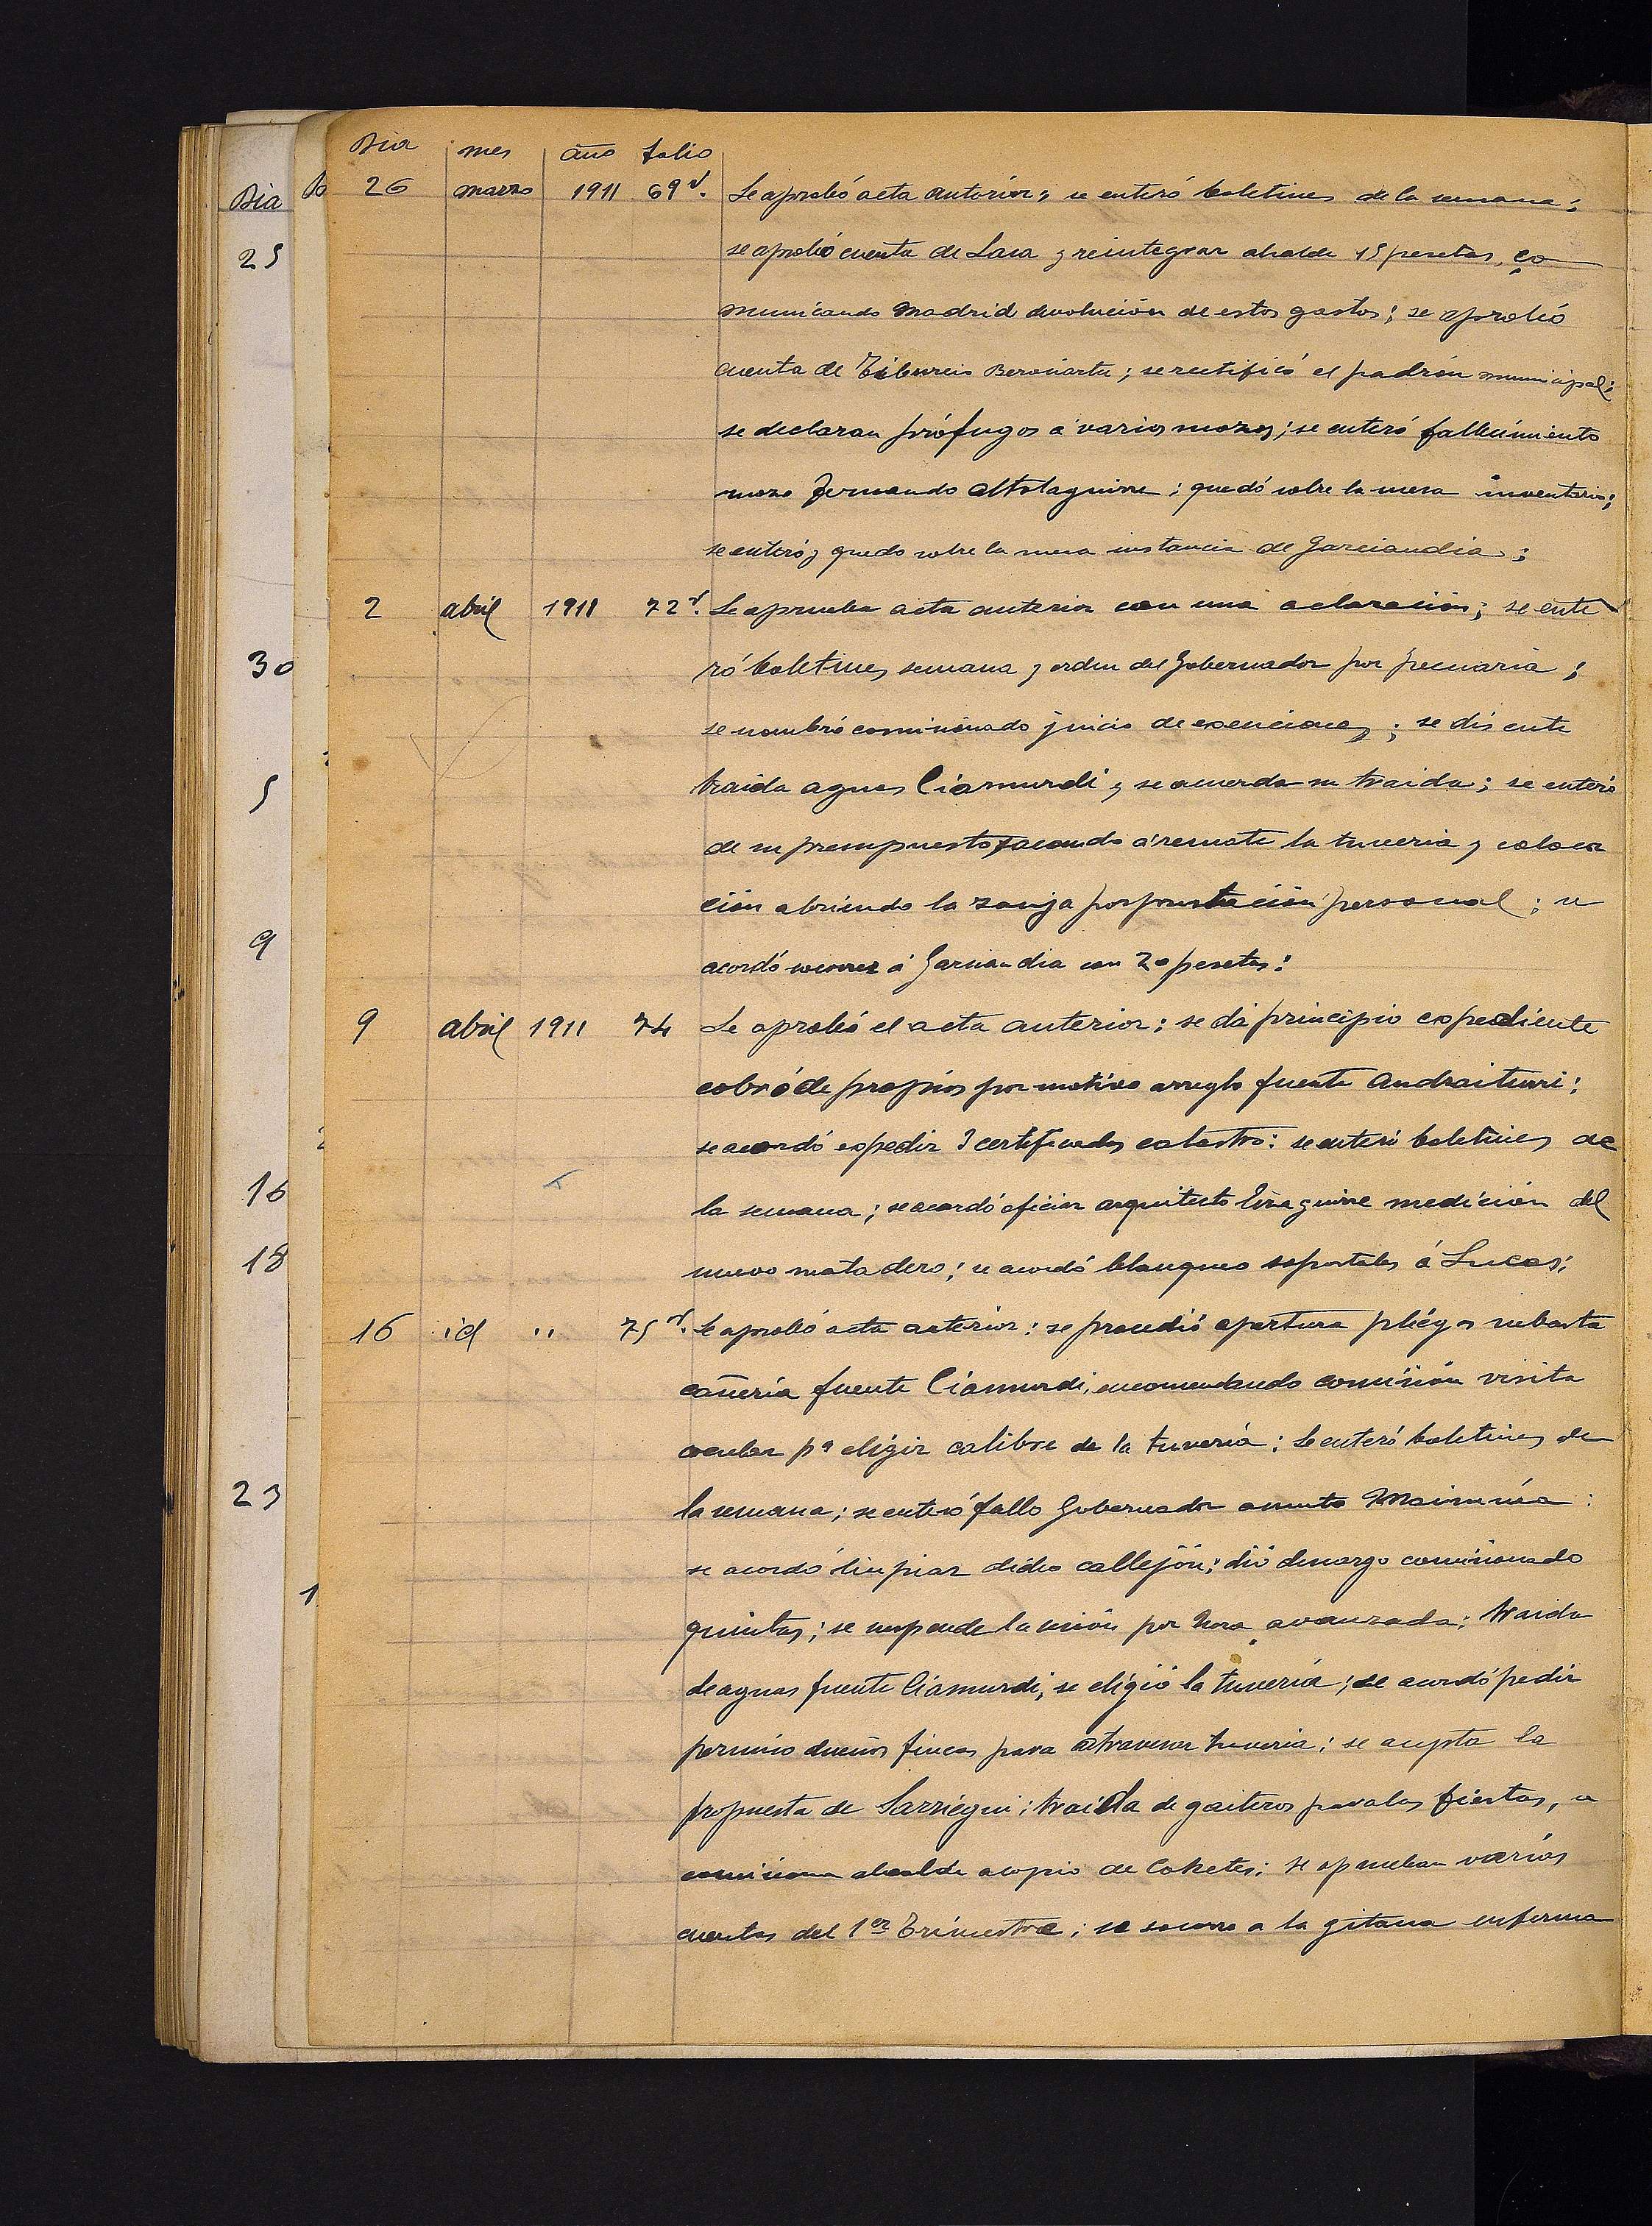 Dia mes año folio
26 marzo 1911 69v. Se aprobó acta anterior; se enteró boletines de la semana;
se aprobó cuenta de Lasa y reintegrar alcalde 15 pesetas, co
municando Madrid devolución de estos gastos; se aprobó
cuenta de Tiburcio Beroiartu; se rectificó el padrón municipal;
se declaran prófugos á varios mozos; se enteró fallecimiento
mozo Fernando Altolaguirre; quedó sobre la mesa inventario;
se enteró y quedo sobre la mesa instancia de Garciandia;
2 abril 1911 72v. Se aprueba acta anterior con una aclaración; se ente
ró boletines semana y orden del Gobernador por pecuaria;
se nombró comisionado juicio de exenciones; se discute
traida aguas Ciamurdi y se acuerda su traida; se enteró
de su presupuesto sacando á remate la tuveria y coloca
ción abriendo la zanja por prestación personal; se
acordó socorrer á Garciandia con 20 pesetas:
9 abril 1911 74 Se aprobó el acta anterior; se dá principio expediente
cobro de propios por motivo arreglo fuente Andraiturri:
se acordó expedir 3 certificados catastro: se enteró boletines de
la semana; se acordó oficiar arquitecto Eizaguirre medición del
nuevo matadero; se acordó blanqueo soportales á Lucas;
16 id " 75v. Se aprobó acta anterior: se procedió apertura pliegos subasta
cañería fuente Ciamurdi, encomendando comisión visita
ocular pa eligir calibre de la tuvería: Se enteró boletines de
la semana; se enteró fallo Gobernador asunto
se acordó limpiar dicho callejón; dió descargo comisionado
quintas; se suspende la sesión por hora avanzada: traida
de aguas fuente Ciamurdi, se eligió la tuvería; se acordó pedir
permiso dueños fincas para atravesar tuveria: se acepta la
propuesta de Sarriegui; traida de gaiteros para las fiestas, se
comisiona alcalde acopio de Cohetes; se aprueban varias
cuentas del 1er trimestre; se socorre a la gitana enferma
Dia
25
30
5
9
16
18
23
1